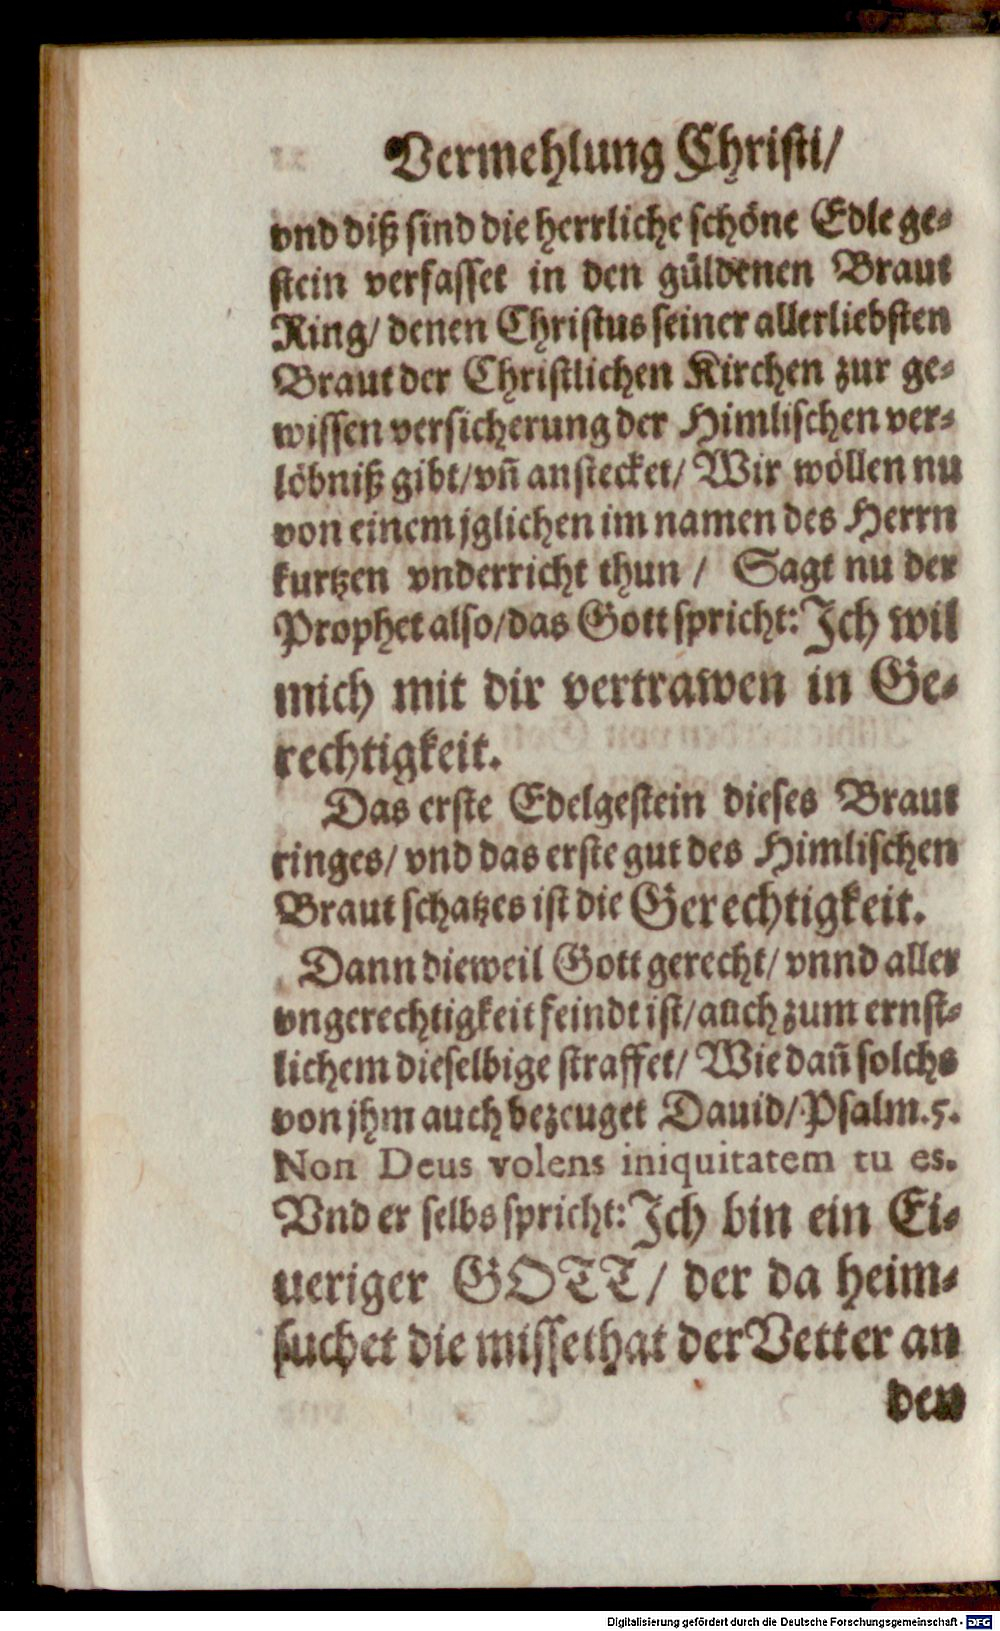 Vermehlung Christi/
vnd diß sind die herrliche schöne Edle ge-
stein verfasset in den güldenen Braut
Ring/ denen Christus seiner allerliebsten
Braut der Christlichen Kirchen zur ge-
wissen versicherung der Himlischen ver-
löbniß gibt/ vñ anstecket/ Wir wöllen nu
von einem jglichen im namen des Herrn
kurtzen vnderricht thun / Sagt nu der
Prophet also/ das Gott spricht: Ich wil
mich mit dir vertrawen in Ge-
rechtigkeit.
Das erste Edelgestein dieses Braut
ringes/ vnd das erste gut des Himlischen
Braut schatzes ist die Gerechtigkeit.
Dann dieweil Gott gerecht/ vnnd aller
vngerechtigkeit feindt ist/ auch zum ernst-
lichem dieselbige straffet/ Wie dañ solchs
von jhm auch bezeuget Dauid/ Psalm. 5.
Non Deus volens iniquitatem tu es.
Vnd er selbs spricht: Ich bin ein Ei-
ueriger GOTT/ der da heim-
suchet die missethat der Vetter an
den
Digitalisierung gefördert durch die Deutsche Forschungsgemeinschaft - DFG